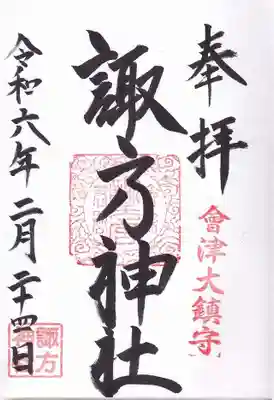 奉拝
會津大鎮守
諏方神社
令和六年二月二十四日
諏方